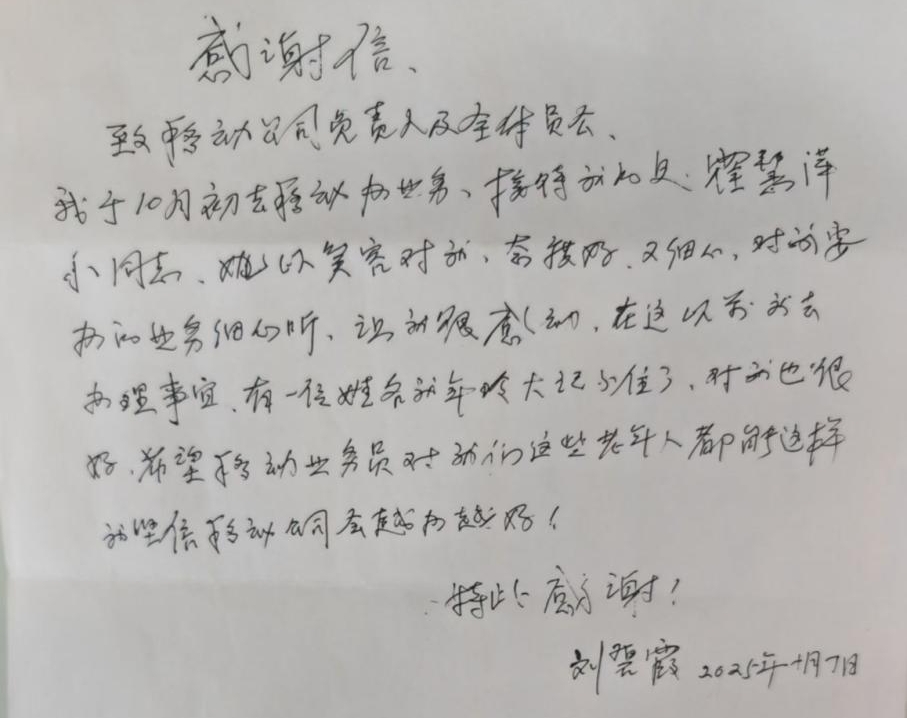 感谢信、
致移动公司负责人及全体员工、
我于10月初去移动办业务、接待我的是：翟慧泽
小同志、她以笑容对我、态度好、又细心，对我要
办的业务细心听、让我很感动，在这以前我去
办理事宜、有一位姓名我年龄大记不住了，对我也很
好，希望移动业务员对我们这些老年人都能这样
我坚信移动公司会越办越好！
特此感谢！
刘碧霞 2025年十月7日